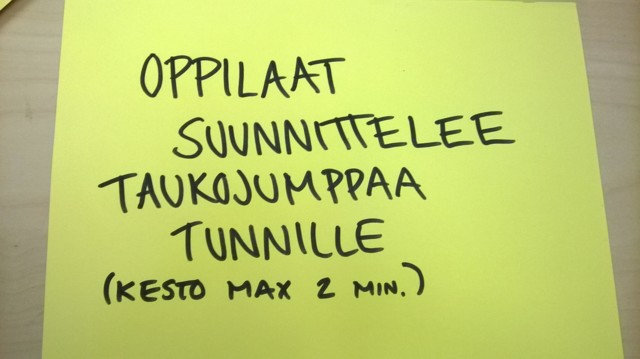 OPPILAAT
SUUNNITTELEE
TAUKOJUMPPAA
TUNNILLE
(KESTO MAX 2 MIN.)